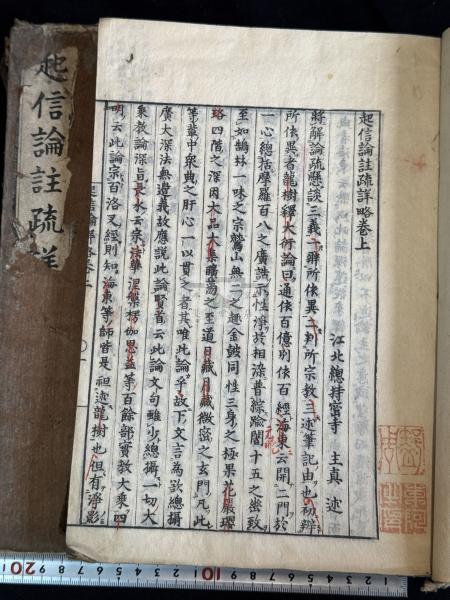 起信論註疏詳略卷上
江北總持密寺 主真 述
將解論疏懸談三義一辯所依異二判所宗教三述筆記由也初辯
所依異者龍樹釋大衍論曰通依百億別依百經海東云開二門於
一心總括摩羅百八之廣誥示性淨於相染普綜踰闍十五之幽致
至如鵠林一味之宗鷲山無二之趣金鼓同性三身之極果花嚴瓔
珞四階之深因大品大集曠蕩之至道日藏月藏微密之玄門凡此
等輩中衆典之肝心一以貫之者其唯此論乎故下文言為欲總攝
廣大深法無邊義故應說此論賢首云此論文句雖少總攝一切大
乘教論深旨長水云宗法華涅槃楞伽思益等百餘部實教大乘四
明云此論宗百洛叉經則知海東等師皆是祖述龍樹也但有淨影
起信論註疏詳
起信論詳略卷上
10
20